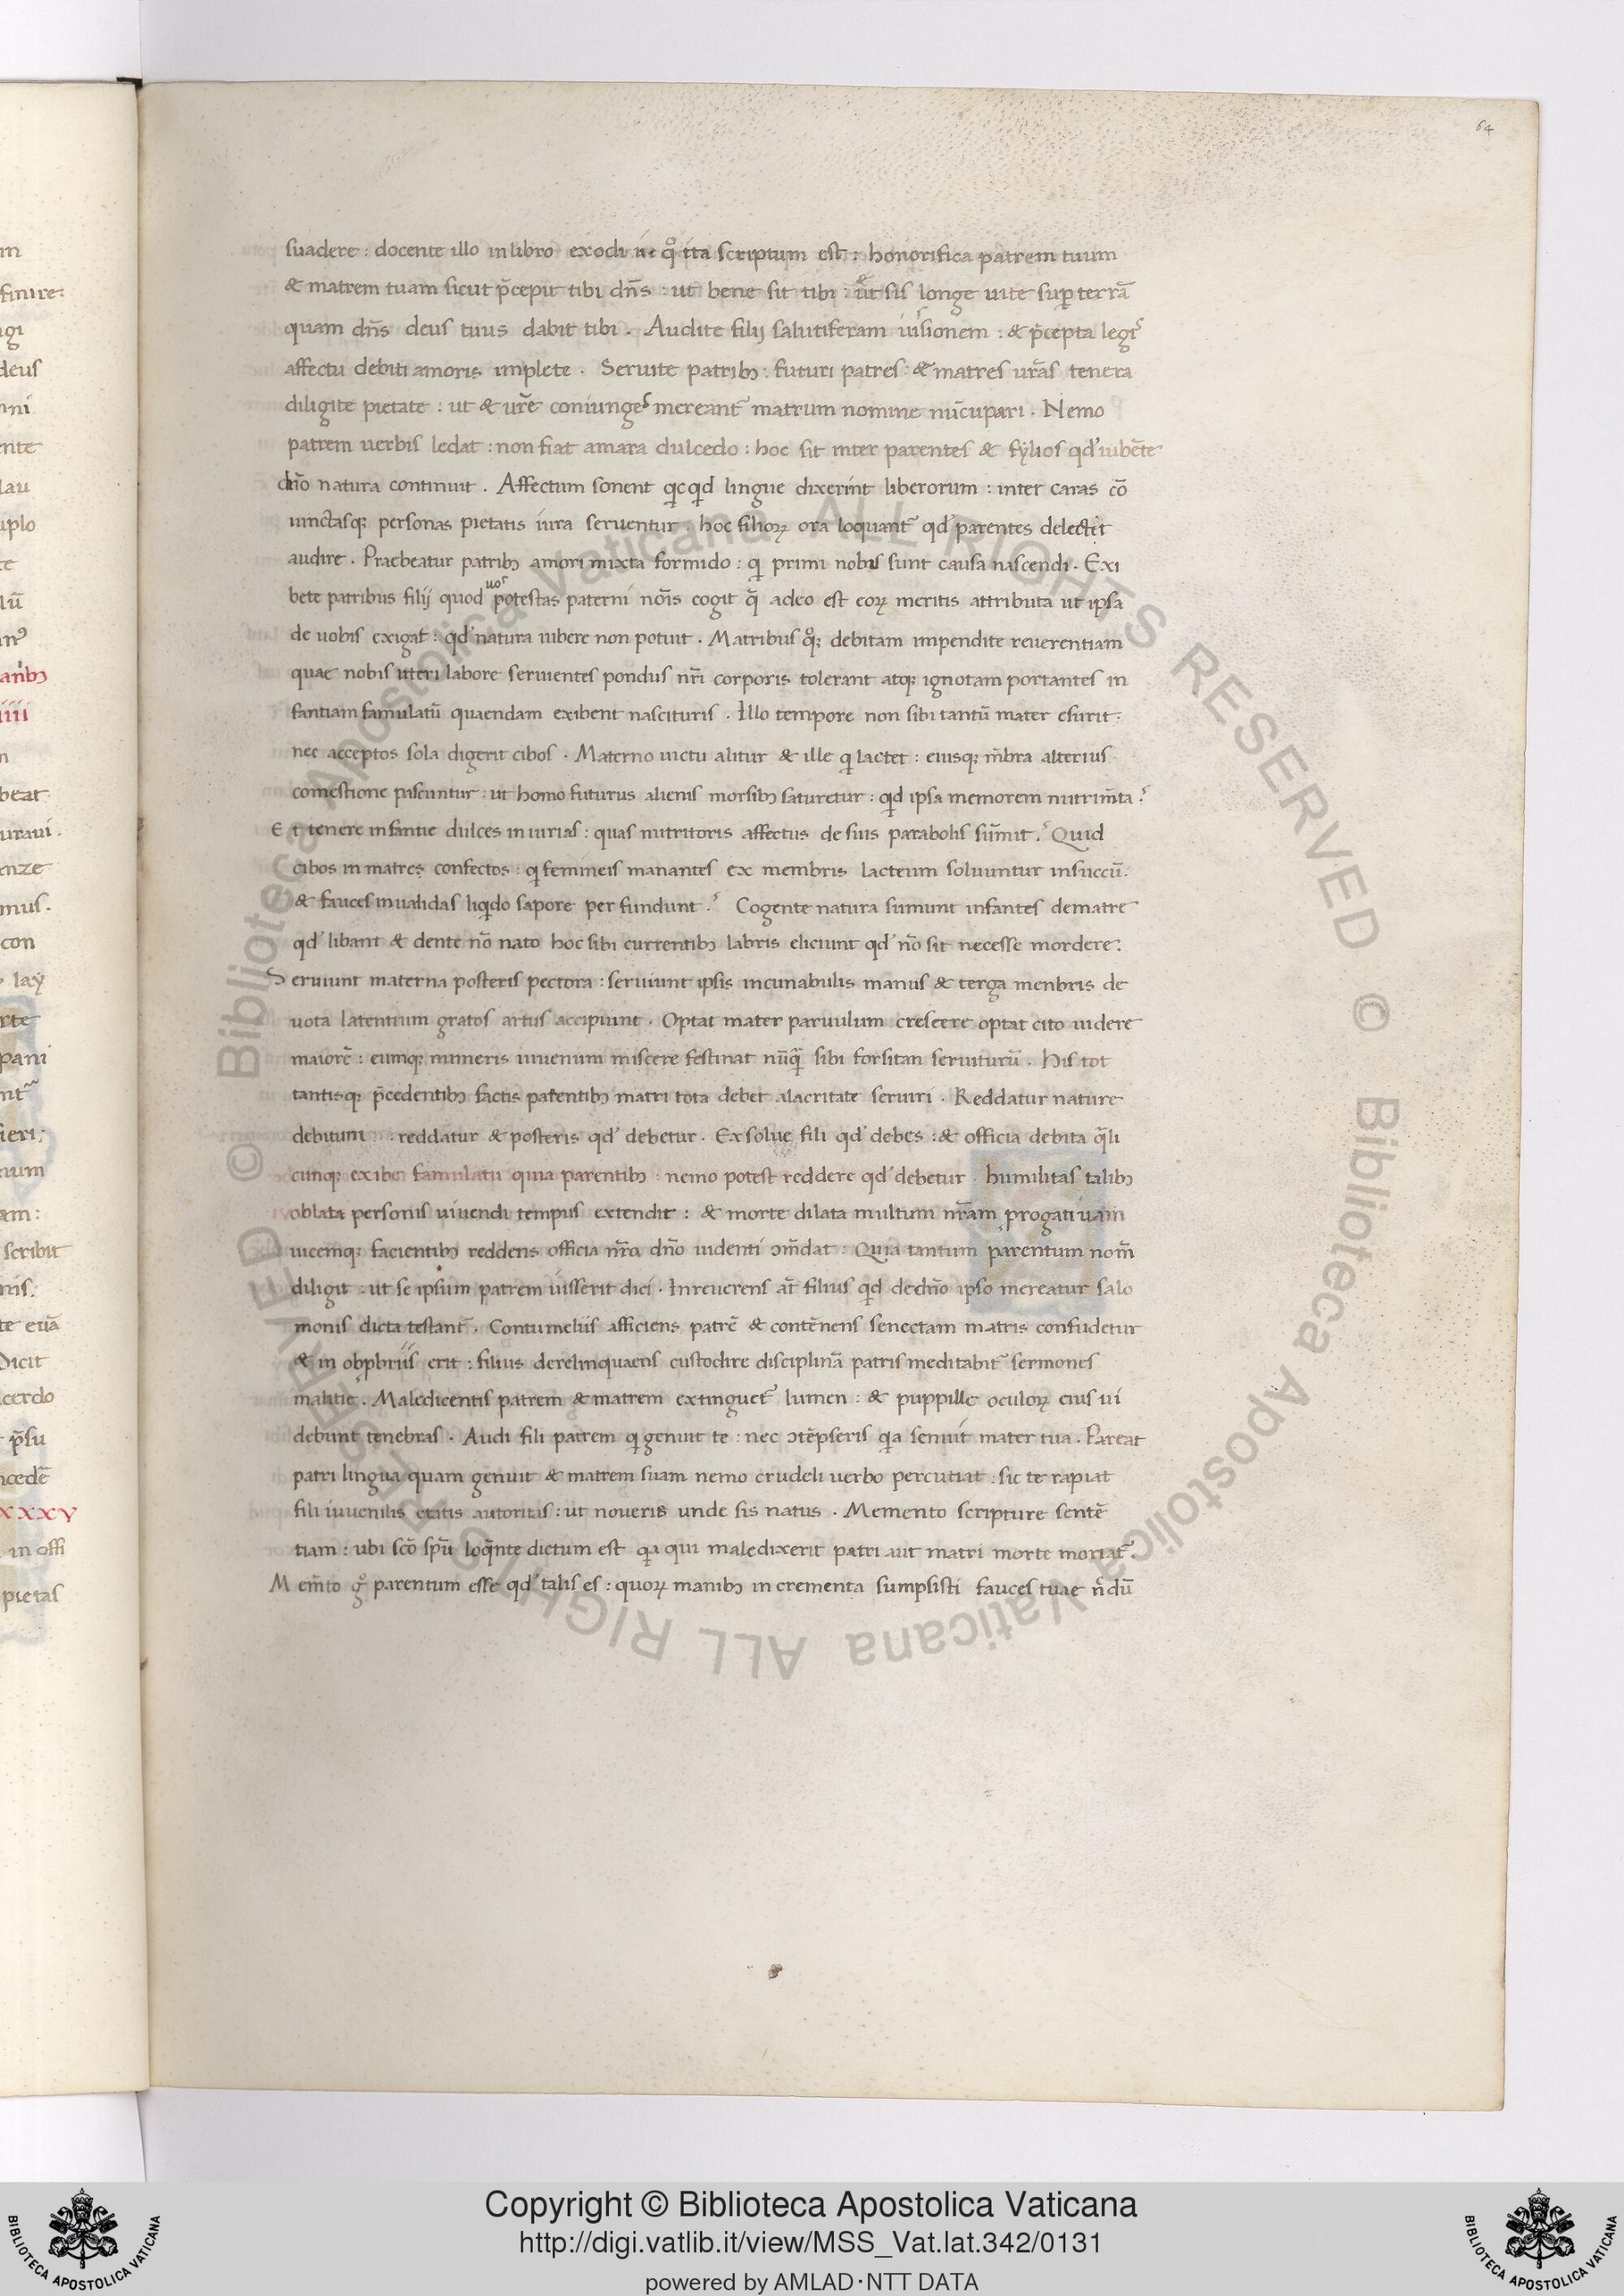 64
suadere : docente illo in libro exodi ne qͦ ita scriptum est̅ : honorifica patrem tuum
& matrem tuam sicut p̅cepit tibi dn̅s : ut bene sit tibi : & ut sis longe uite sup̱ terrā
quam dn̅s deus tuus dabit tibi . Audite filij salutiferam iussionem : & p̅cepta legis
affectu debiti amoris implete . Seruite patribꝫ : futuri patres : & matres ur̅as tenera
diligite pietate : ut & ur̅e coniuges mereant᷑ matrum nomine nu̅cupari . Nemo
patrem uerbis ledat : non fiat amara dulcedo : hoc sit inter parentes & fẏlios qd' iube̅te
dn̅o natura continuit . Affectum sonent qicqid lingue dixerint liberorum : inter caras co̅
iunctasqꝫ personas pietatis iura seruentur . hoc filioꝝ ora loquant᷑ qd' parentes delectet
audire . Praebeatur patribꝫ amori mixta formido : qi primi nobis sunt causa nascendi . Exi
bete patribus filij quod uos potestas paterni no̅is cogit q̅ adeo est eoꝝ meritis attributa ut ipsa
de uobis exigat : qd' natura iubere non potuit . Matribus qͦꝫ debitam impendite reuerentiam
quae nobis uteri labore seruientes pondus nr̅i corporis tolerant atqꝫ ignotam portantes in
fantiam famulatu̅ quaendam exibent nascituris . Illo tempore non sibi tantu̅ mater esurit :
nec acceptos sola digerit cibos . Materno uictu alitur & ille qi lactet : eiusqꝫ m̅bra alterius
comestione pascuntur : ut homo futurus alienis morsibꝫ saturetur : qid ipsa memorem nutrim̅ta ?
Et tenere infantie dulces iniurias : quas nutritoris affectus de suis parabolis sum̅it ? Quid
cibos in matres confectos : qi femineis manantes ex membris lacteum soluuntur in succu̅ .
& fauces inualidas liqido sapore perfundunt ? Cogente natura sumunt infantes de matre
qd' libant & dente no̅ nato hoc sibi currentibꝫ labris eliciunt qd' no̅ sit necesse mordere :
Seruiunt materna posteris pectora : seruiunt ipsis incunabulis manus & terga menbris de
uota latentium gratos artus accipiunt . Optat mater paruulum crescere optat cito uidere
maiore̅ : eumqꝫ muneris iuuenum miscere festinat nu̅q̅ sibi forsitan seruituru̅ . His tot
tantisqꝫ p̅cedentibꝫ factis patentibꝫ matri tota debet alacritate seruiri . Reddatur nature
debitum : reddatur & posteris qd' debetur . Exsolue fili qd' debes : & officia debita q̅li
cunqꝫ exibe famulatu quia parentibꝫ : nemo potest reddere qd' debetur . humilitas talibꝫ
oblata personis uiuendi tempus extendit : & morte dilata multum nr̅am progatiuam
uicemqꝫ facientibꝫ reddens officia nr̅a dn̅o uidenti ↄm̅dat : Quia tantum parentum nom̅
diligit : ut se ipsum patrem iusserit dici . Inreuerens at̅ filius qid de dn̅o ipso mereatur salo
monis dicta testant᷑ . Contumeliis afficiens patre̅ & conte̅nens senectam matris confu̅detur
& in obp̱briis erit : filius derelinquaens custodire disciplina̅ patris meditabit᷑ sermones
malitie . Maledicentis patrem & matrem extinguet᷑ lumen : & puppille oculoꝝ eius ui
debunt tenebras . Audi fili patrem qi genuit te : nec ↄte̅pseris qia senuit mater tua . Pareat
patri lingua quam genuit & matrem suam nemo crudeli uerbo percutiat : sic te rapiat
fili iuuenilis etatis autoritas : ut noueris unde sis natus . Memento scripture sente̅
tiam : ubi sco̅ spu̅ loq̅nte dictum est qia qui maledixerit patri aut matri morte moriat᷑ .
Mem̅to gͦ parentum esse qd' talis es : quoꝝ manibꝫ incrementa sumpsisti fauces tuae n̅du̅
Copyright © Biblioteca Apostolica Vaticana
http://digi.vatlib.it/view/MSS_Vat.lat.342/0131
powered by AMLAD·NTT DATA
BIBLIOTECA APOSTOLICA VATICANA
BIBLIOTECA APOSTOLICA VATICANA
© Biblioteca Apostolica Vaticana ALL RIGHTS RESERVED © Biblioteca Apostolica Vaticana ALL RIGHTS RESERVED